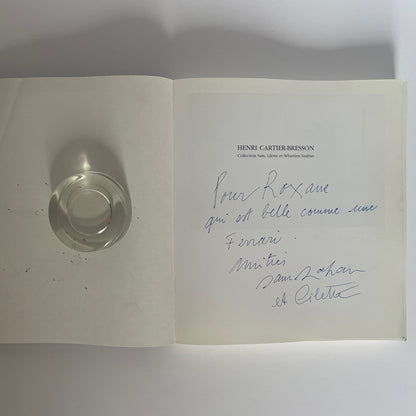 HENRI CARTIER-BRESSON
Collection Sam, Lilette et Sébastien Szafran
Pour Roxane
qui est belle comme une
Ferrari.
Amitiés
Sam Szafran
et Lilette